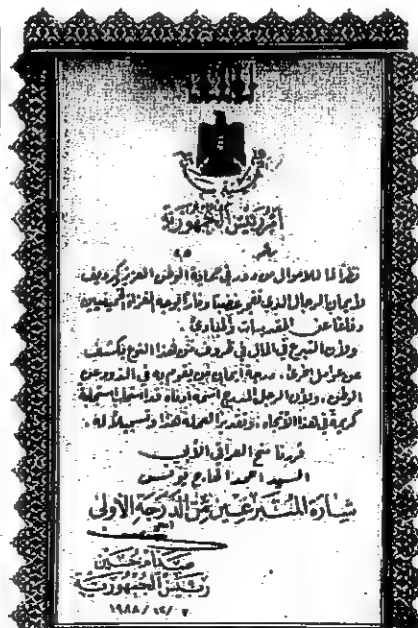 أمر رئيس الجمهورية
نظراً لما للأموال من دور في حماية الوطن العزيز كرديف
لإيمان الرجال الذي تفجر غضباً وناراً بوجه الغزاة الخمينيين
دفاعاً عن المقدسات والمبادئ.
ولأن التبرع في المال في ظروف من هذا النوع يكشف
عن عوامل أخرى، درجة إيمان من يقوم به في الذود عن
الوطن، ولأن الرجل المدرج اسمه أدناه قد استهل استهلالة
كريمة في هذا الاتجاه، وتقديراً لعمله هذا وتسجيلاً له،
قررنا منح العراقي الأبي
السيد احمد الحاج يونس
شارة المتبرعين من الدرجة الأولى
صدام حسين
رئيس الجمهورية
١٩٨٨/١٢/